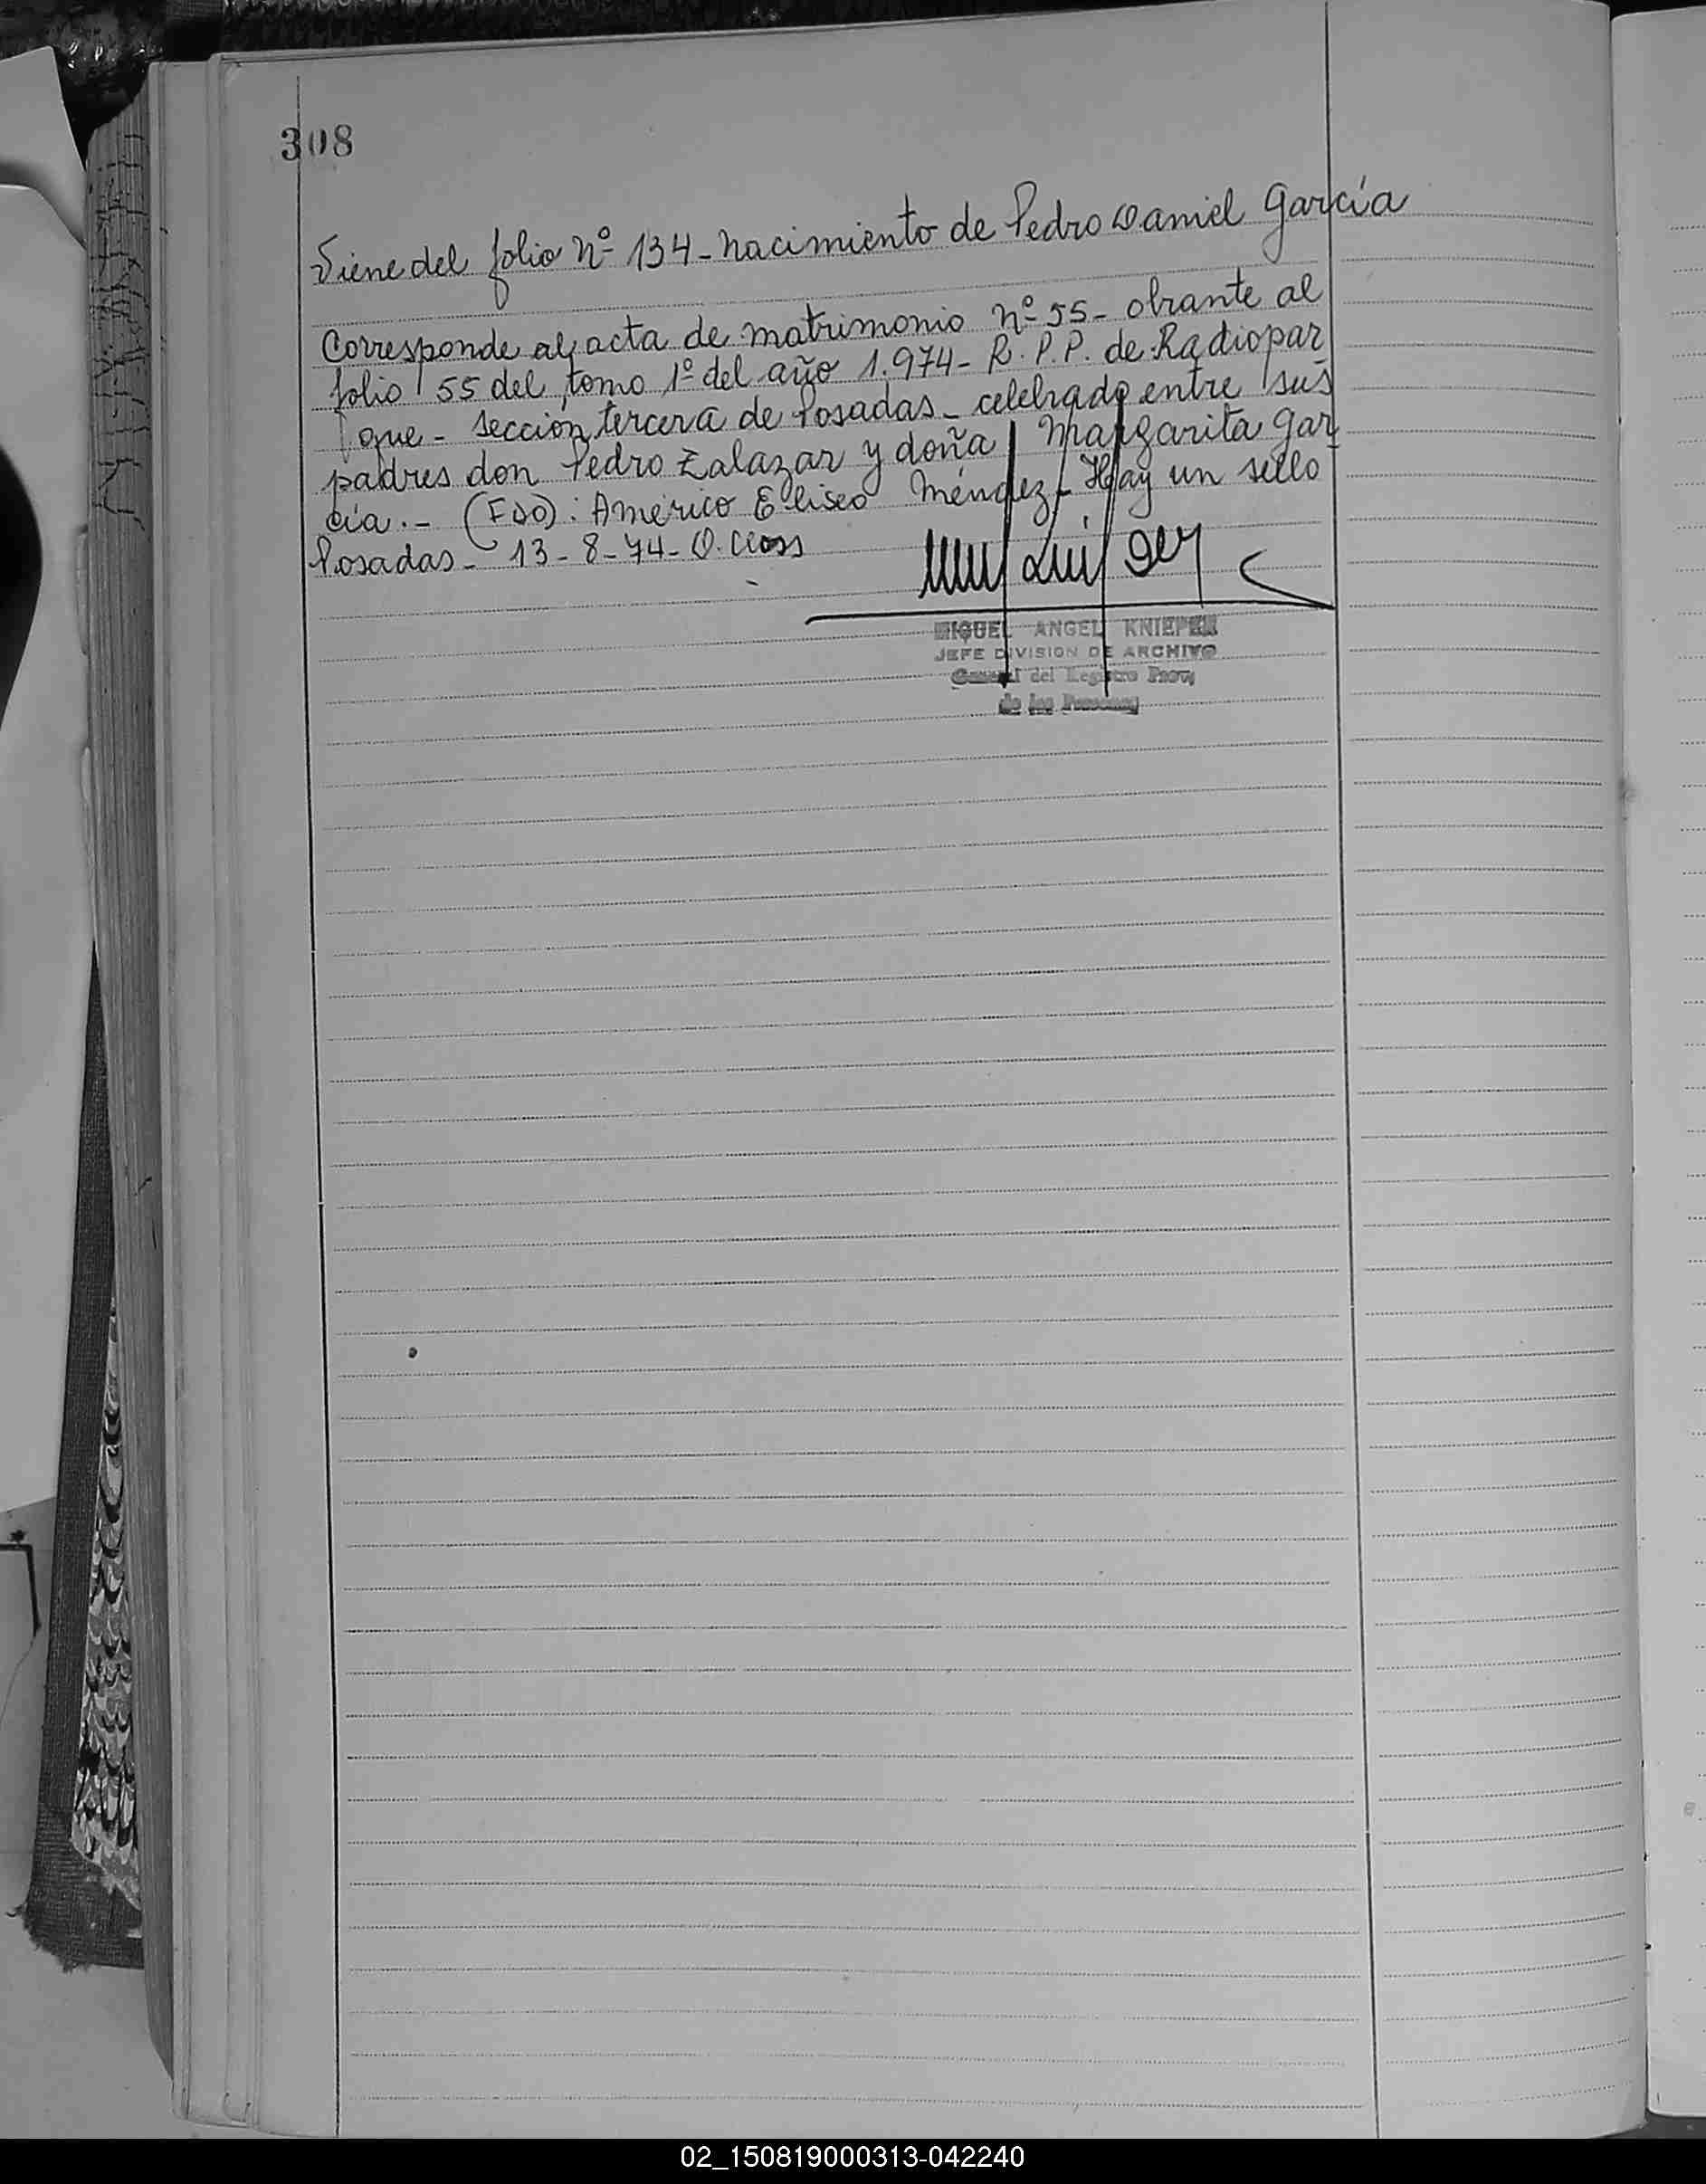 308
Viene del folio Nº 134 - Nacimiento de Pedro Daniel García
Corresponde al acta de matrimonio Nº 55 - obrante al
folio 55 del tomo 1º del año 1.974 - R. P. P. de Radiopar
que - sección tercera de Posadas - celebrado entre sus
padres don Pedro Zalazar y doña Margarita Gar
cía. - (FDO): Américo Eliseo Méndez - Hay un sello
Posadas - 13 - 8 - 74 - O.
MIGUEL ANGEL KNIEPER
JEFE DIVISION DE ARCHIVO
General del Registro Prov.
de las Personas
02_150819000313-042240